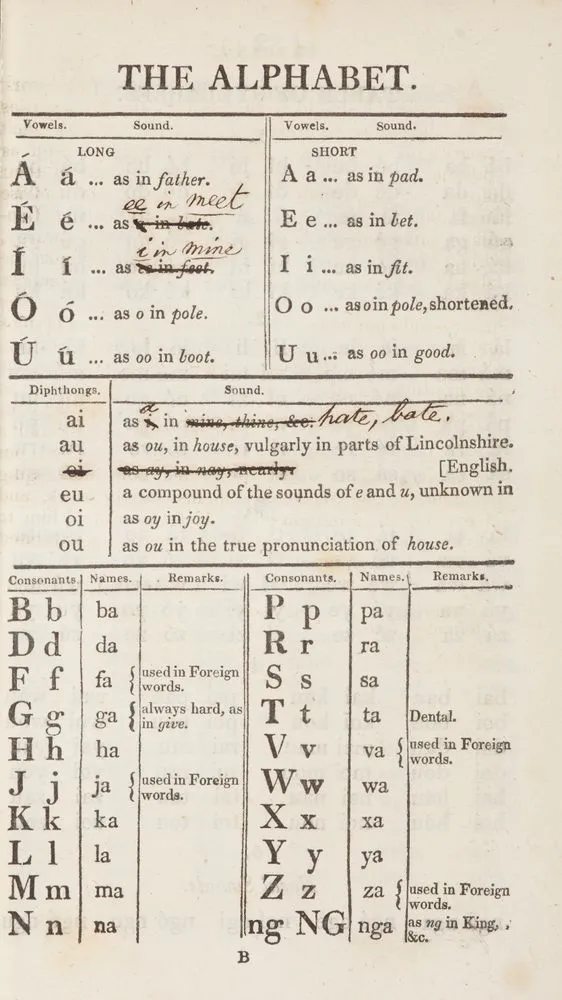 THE ALPHABET.
Vowels. Sound. Vowels. Sound.
LONG SHORT
Á á ... as in father. A a ... as in pad.
ee in meet
É é ... as a in bate. E e ... as in bet.
i in mine
Í í ... as ee in feet. I i ... as in fit.
Ó ó ... as o in pole. O o ... as o in pole, shortened.
Ú ú ... as oo in boot. U u ... as oo in good.
Diphthongs. Sound.
ai as a in mine, thine, &c. hate, bate.
au as ou, in house, vulgarly in parts of Lincolnshire.
ei as ay, in nay, nearly. [English.
eu a compound of the sounds of e and u, unknown in
oi as oy in joy.
ou as ou in the true pronunciation of house.
Consonants. Names. Remarks. Consonants. Names. Remarks.
B b ba P p pa
D d da R r ra
F f fa { used in Foreign words. S s sa
G g ga { always hard, as in give. T t ta Dental.
H h ha V v va { used in Foreign words.
J j ja { used in Foreign words. W w wa
K k ka X x xa
L l la Y y ya
M m ma Z z za { used in Foreign words.
N n na ng NG nga as ng in King, &c.
B